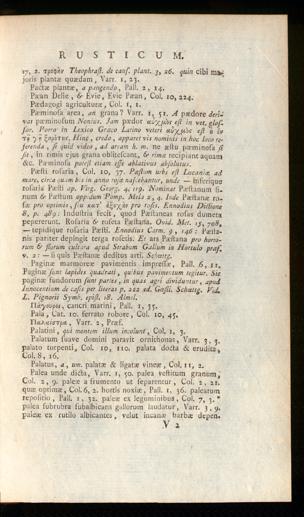 RUSTICUM.
17, 2. Theophrast. de caus. plant. 3, 26. quin cibi ma-
joris plantæ quædam, Varr. 1, 23.
Pactæ plantæ, a pangendo, Pall. 2, 14.
Pæan Delie, & Evie, Evie Pæan, Col. 10, 224.
Pædagogi agricultuæ, Col. 1, 1.
Pæminosa area, an grana? Varr. 1, 51. A pædore deri-
vat pæminosum Nonius. Jam pædor est in vet. glos-
sar. Porro in Lexico Græco Latino veteri est
Hinc, credo, apparet vis nominis in hoc loco re-
ferenda, si quid video, ad aream h. m. ne æstu pæminosa si
sie, in rimis ejus grana obsitescant, & rima recipiant aquam
&c. Pæminosa potest etiam esse ablativus absolutus.
Pæsti rosaria, Col. 10, 37. Pæstum urbs est Lucaniæ, ad
mare, circa quam bis in anno rosæ nascebantur, unde — biferique
rosaria Pæsti ap. Virg. Georg. 4, 119. Nominat Pæstanum si-
num & Pæstum oppidum Pomp. Mela 2, 4. Inde Pæstanæ ro-
sæ pro optimis, pro rosis. Ennodius Dictione
8, p. 489: Industria fecit, quod Pæstaneas rosas dumeta
pepererunt. Rosaria & roseta Pæstana. Ovid. Met. 15, 708,
— tepidique rosaria Pæsti. Ennodius Carm. 9, 146: Pæsta-
nis pariter depingit terga rosetis. Et ars Pæstana pro horto-
rum & florum cultura apud Strabum Gallum in Hortulo præf.
v. 2: — si quis Pæstanæ deditus arti. Schœttg.
Paginæ marmoreæ pavimentis impressæ, Pall. 6, 11.
Paginæ sunt lapides quadrati, quibus pavimentum tegitur. Sic
paginæ fundorum sunt partes, in quas agri dividuntur, apud
Innocentium de casis per literas p. 222 ed. Goess. Schœttg. Vid.
L. Pignorii Symb. epist. 18. Almel.
cancri marini, Pall. 1, 35.
Pala, Cat. 10. ferrato robore, Col. 10, 45.
Varr. 2, Præf.
Palatini, qui montem illum incolunt, Col. 1, 3.
Palatum suave domini paravit ornithonas, Varr. 3, 3.
palato torpenti, Col. 10, 110. palata docta & erudita,
Col. 8, 16.
Palatus, a, um. palatæ & ligatæ vineæ, Col. 11, 2.
Palea unde dicta, Varr. 1, 50. palea vestitum granum,
Col. 2, 9. paleæ a frumento ut separentur, Col. 2, 21.
quæ optimæ, Col. 6, 2. hortis noxiæ, Pall. 1, 36. palearum
repositio, Pall. 1, 32. paleæ ex leguminibus, Col. 7, 3.
palea subrubra subalbicans gallorum laudatur, Varr. 3, 9.
paleæ ex rutilo albicantes, velut incanæ barbæ depen-
V 2